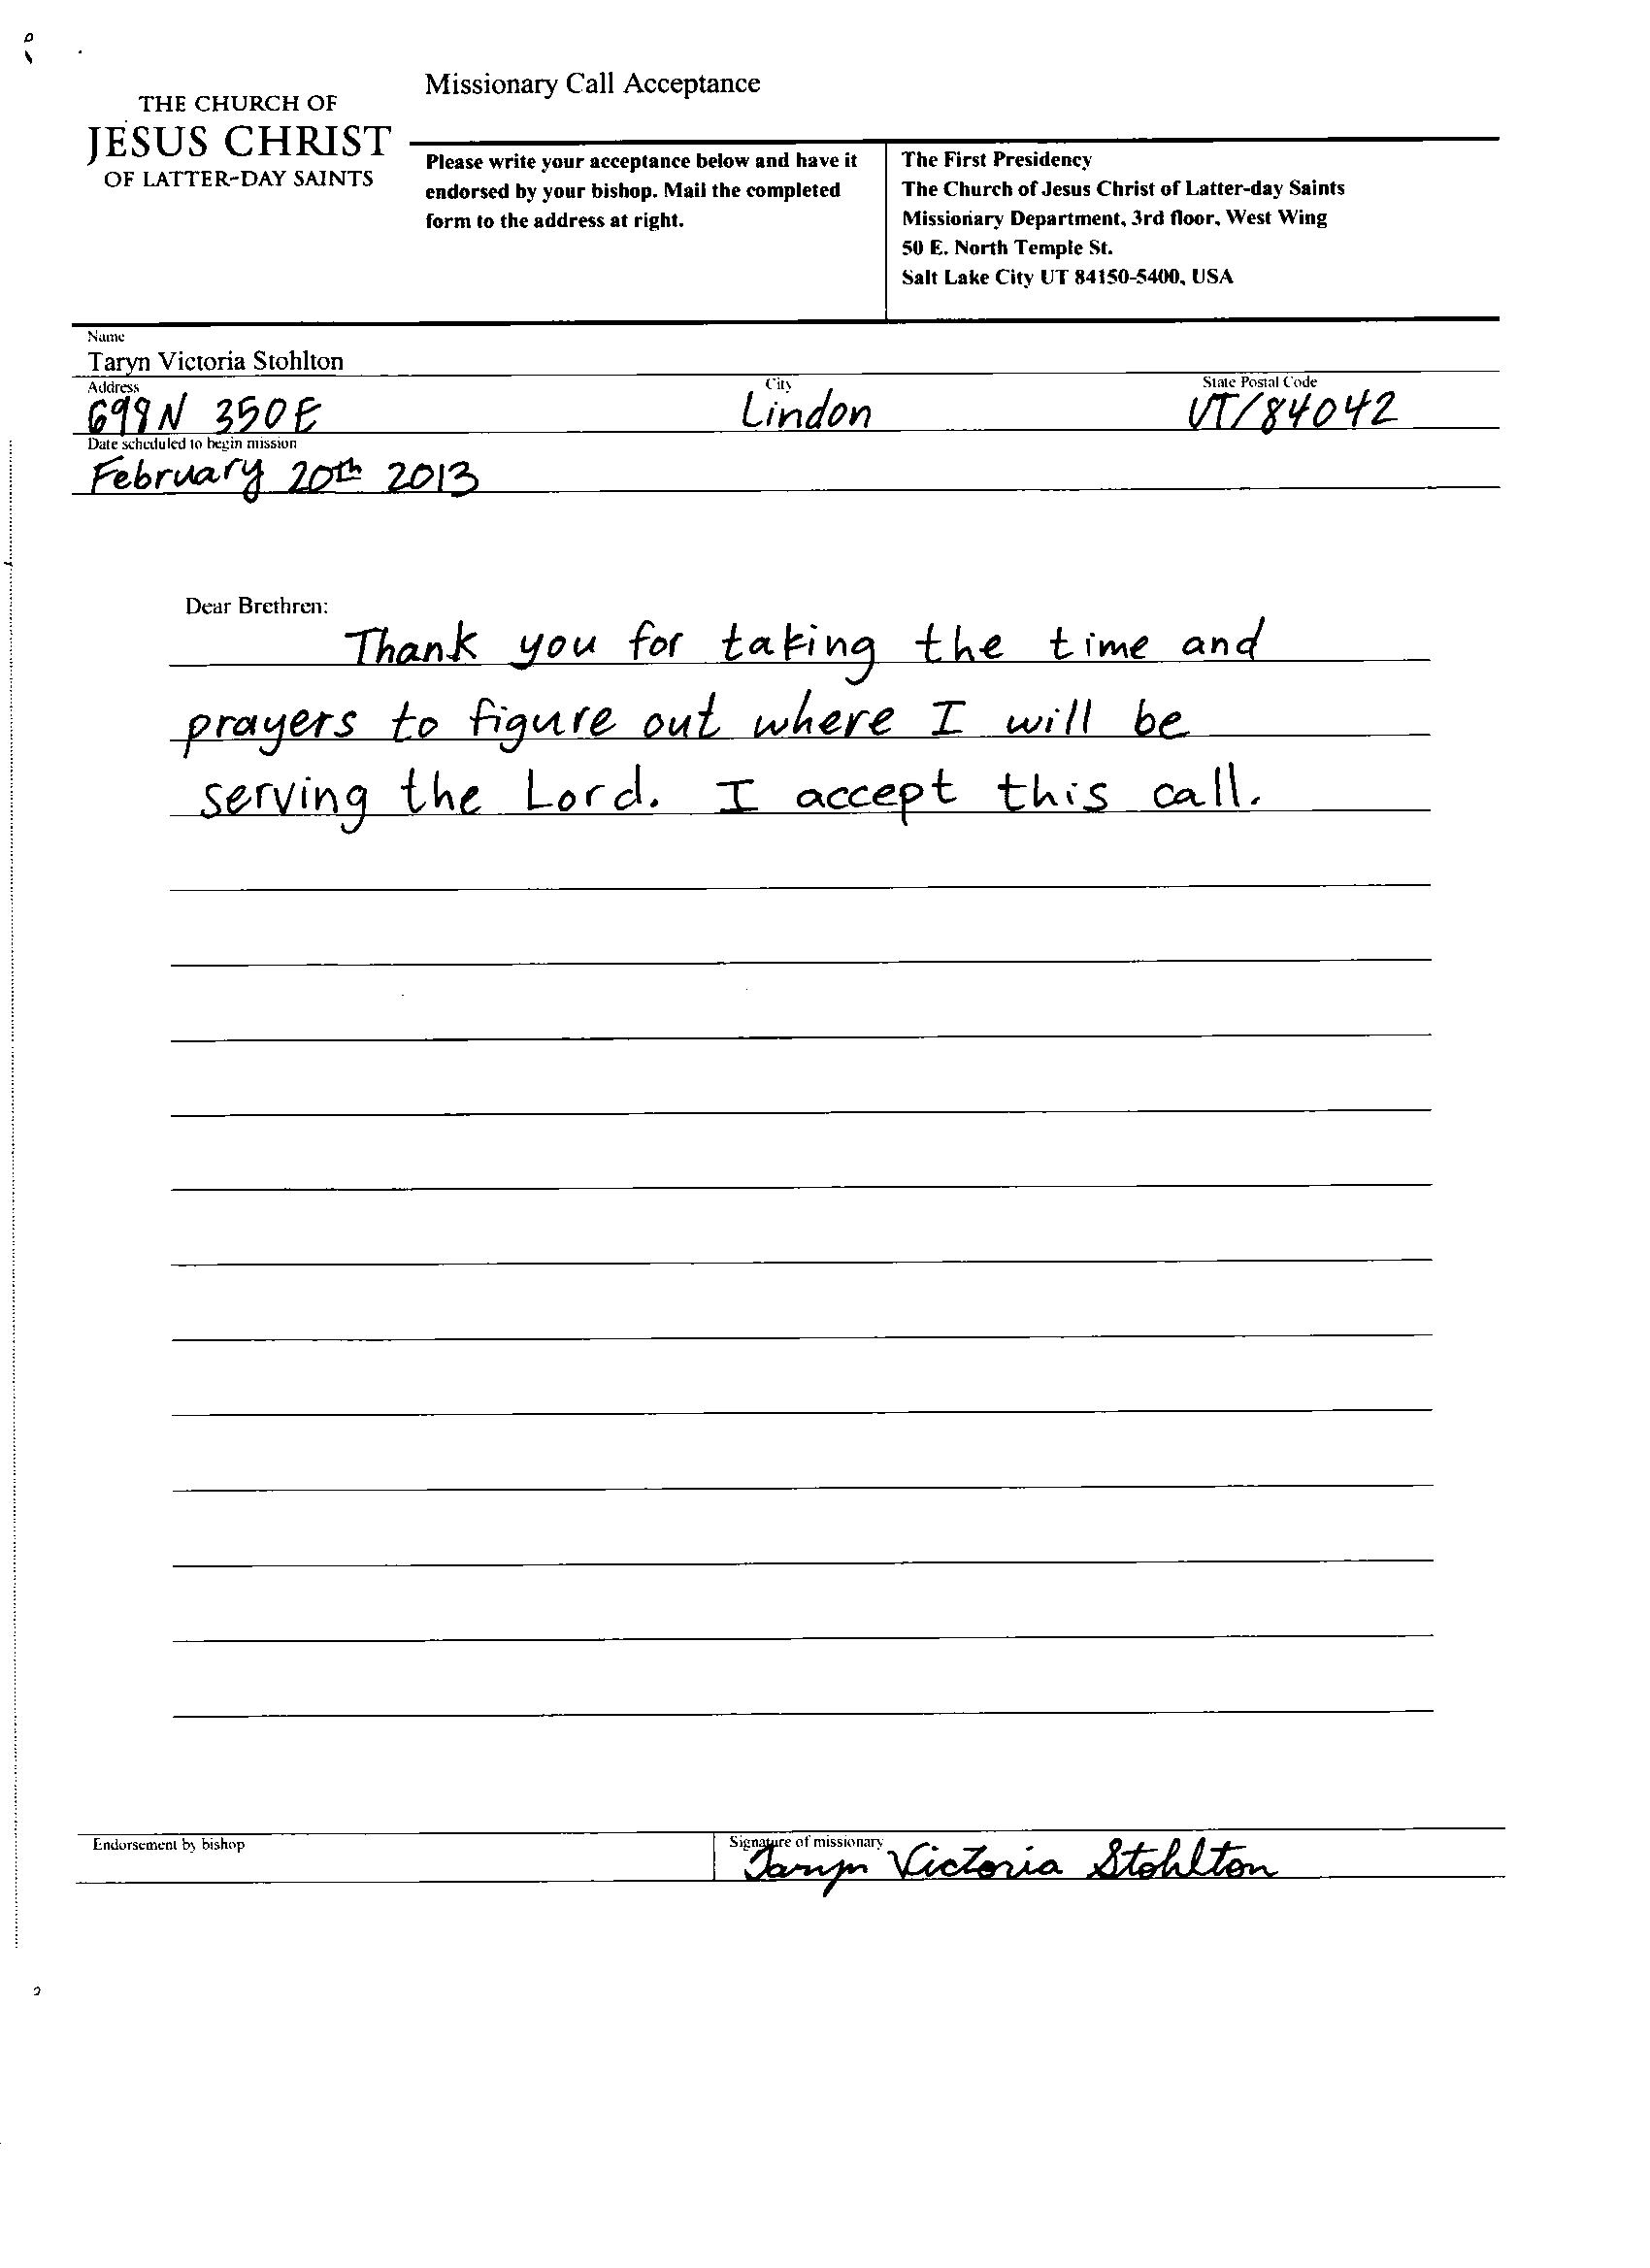 Missionary Call Acceptance
THE CHURCH OF
JESUS CHRIST
OF LATTER-DAY SAINTS
Please write your acceptance below and have it
endorsed by your bishop. Mail the completed
form to the address at right.
The First Presidency
The Church of Jesus Christ of Latter-day Saints
Missionary Department, 3rd floor, West Wing
50 E. North Temple St.
Salt Lake City UT 84150-5400, USA
Name
Taryn Victoria Stohlton
Address City State Postal Code
699 N 350 E Lindon UT/84042
Date scheduled to begin mission
February 20th 2013
Dear Brethren:
Thank you for taking the time and
prayers to figure out where I will be
serving the Lord. I accept this call.
Endorsement by bishop
Signature of missionary
Taryn Victoria Stohlton